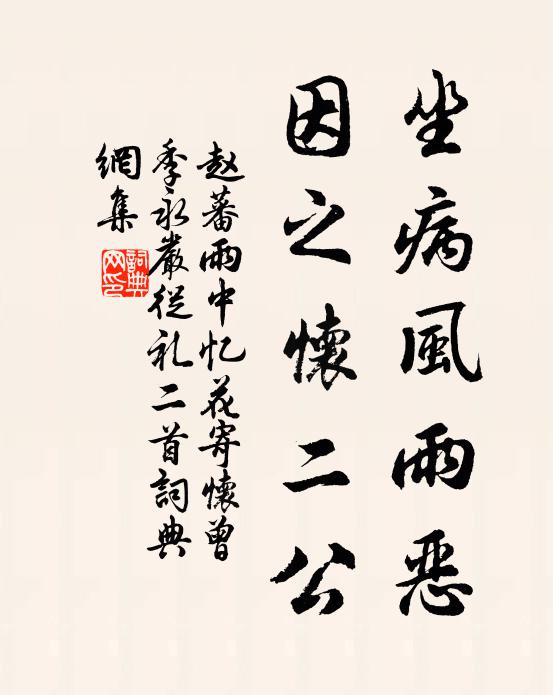 坐病風雨恶
因之懷二公
赵蕃雨中忆花寄懷曾
季永嚴從礼二首詞典
網集
詞典
网印